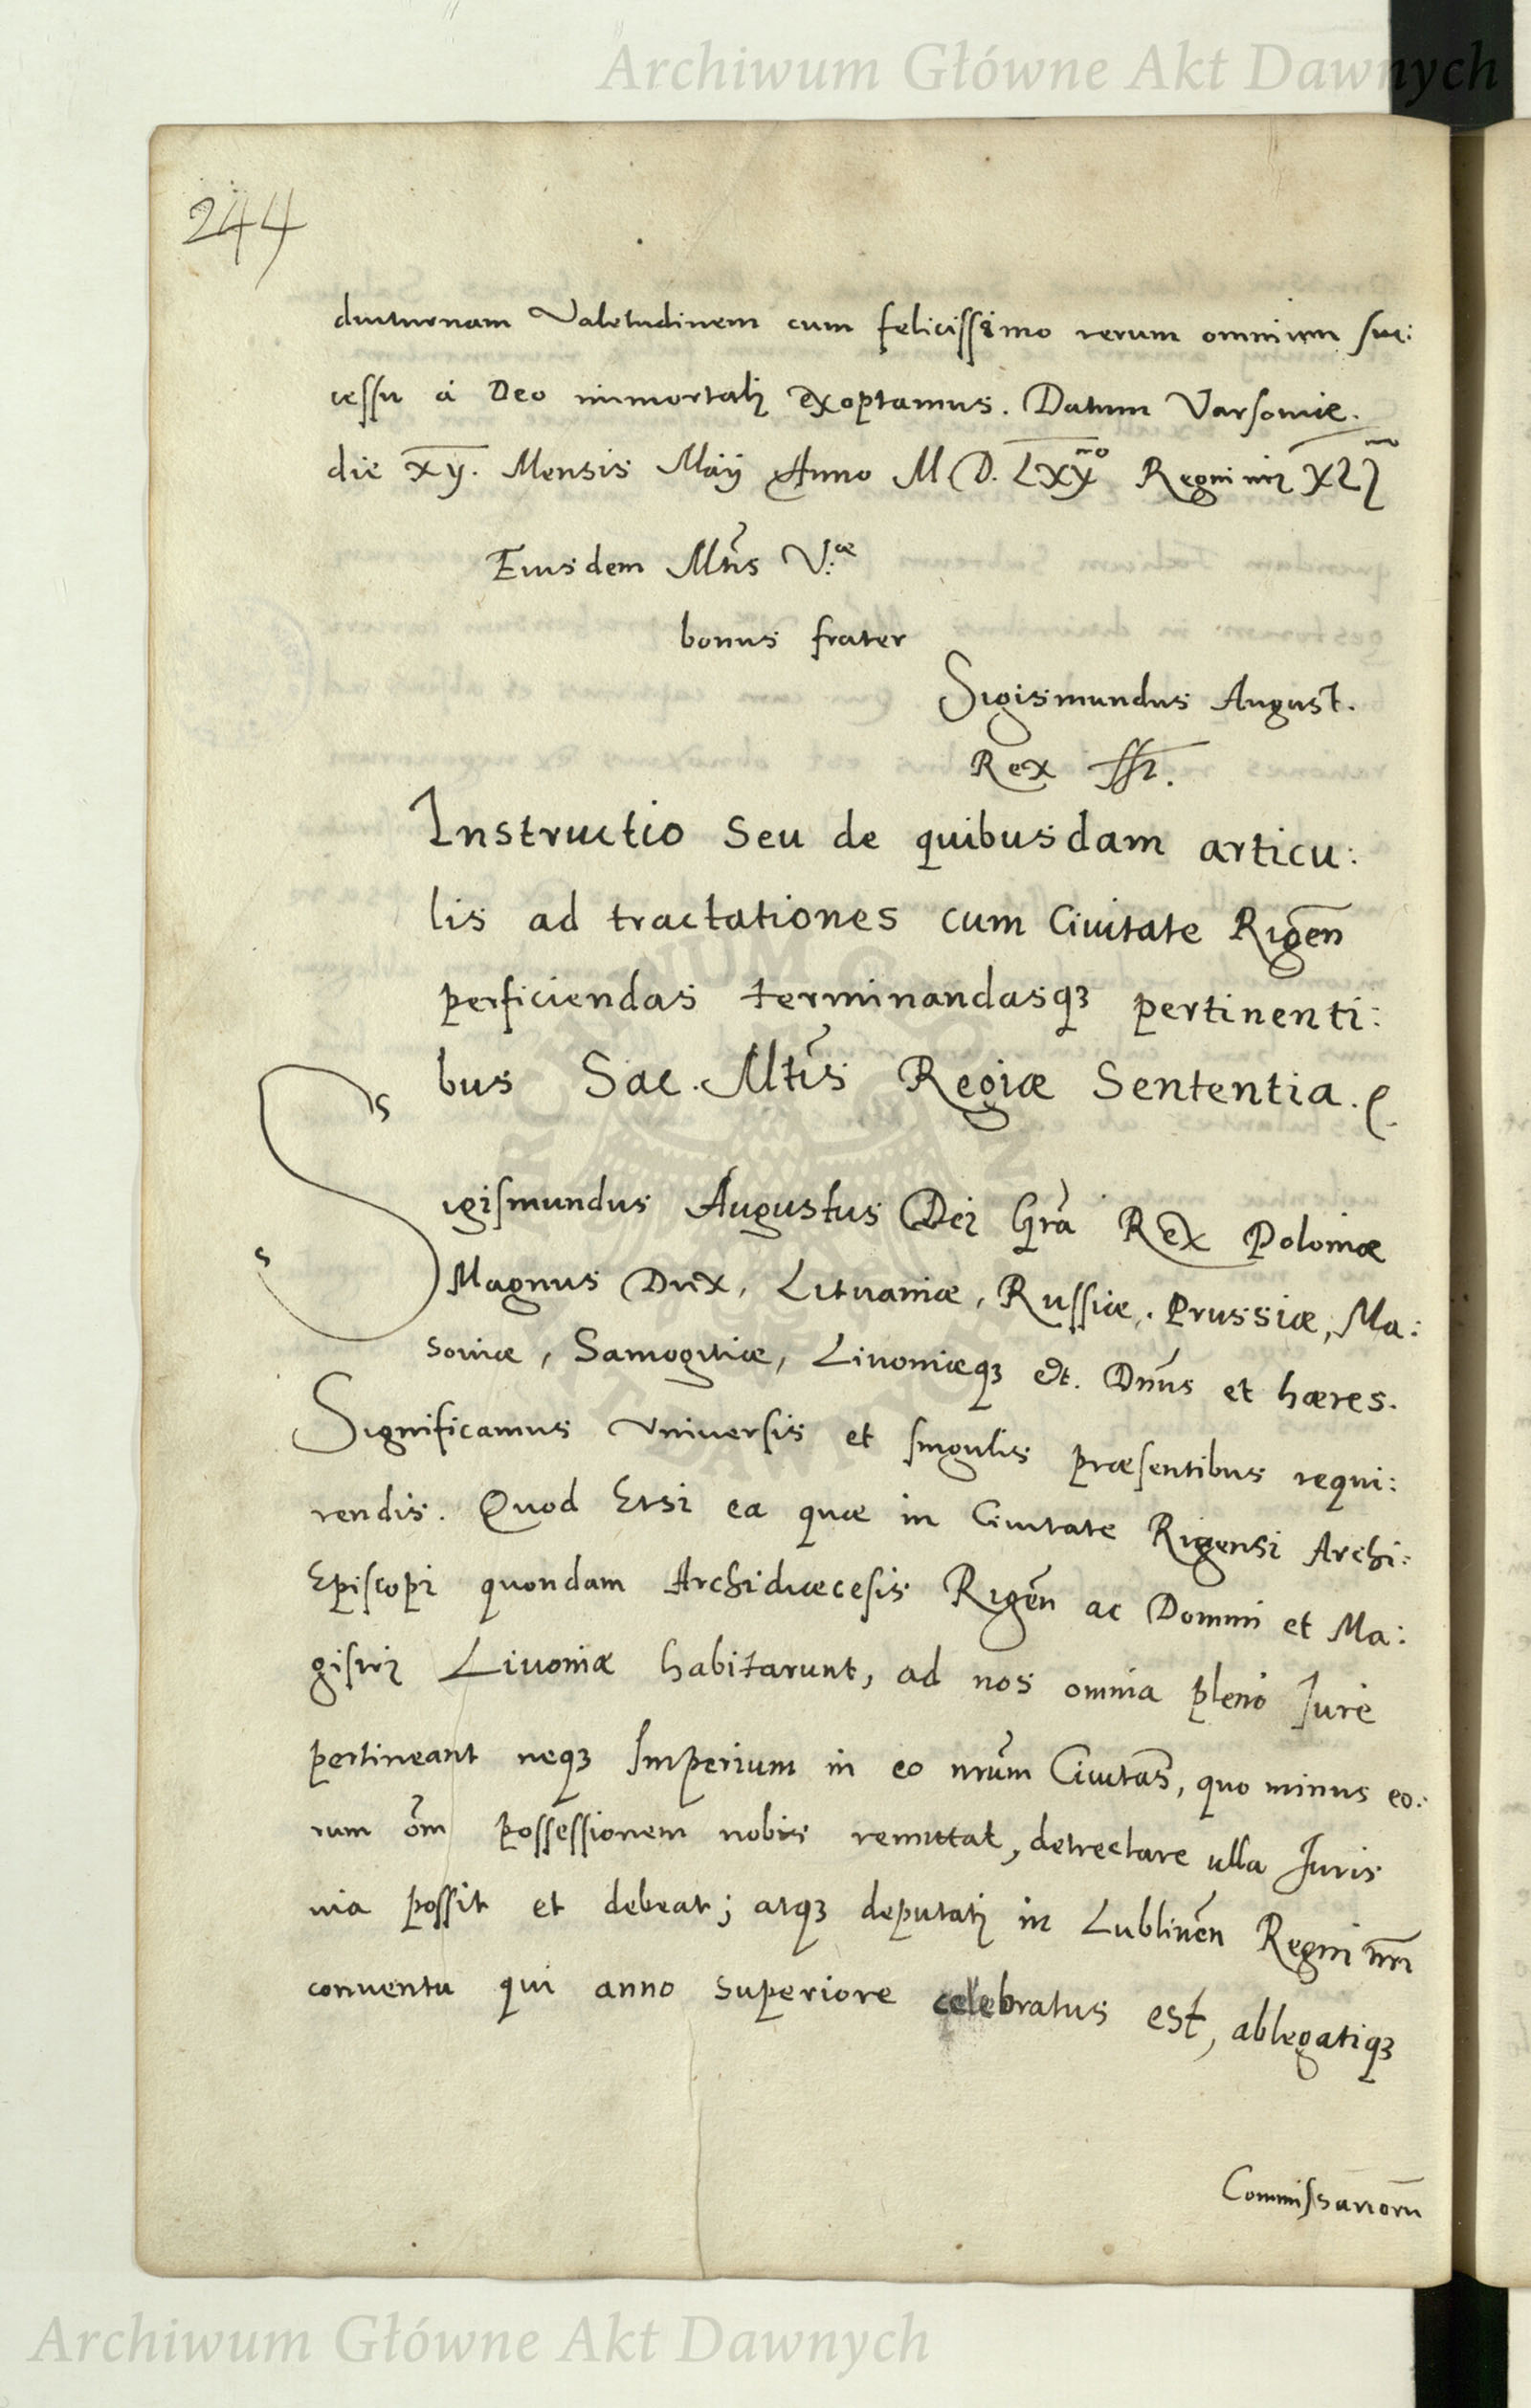 Archiwum Główne Akt Dawnych
244
diuturnam Valetudinem cum felicissimo rerum omnium suc:
cessu á Deo immortalj exoptamus. Datum Varsouiæ.
die xy. Mensis Maij Anno M D. Lxx
Eiusdem Mtis V.æ
bonus frater
Sigismundus August.
Rex
Instructio seu de quibusdam articu:
lis ad tractationes cum Ciuitate Rigen̄
perficiendas terminandasqꝫ pertinenti:
bus Sac. Mtis Regiæ Sententia.
Sigismundus Augustus Dei Gra Rex Poloniæ
Magnus Dux, Lituaniæ, Russiæ, Prussiæ, Ma:
souiæ, Samogitiæ, Liuoniæqꝫ etc. Dnus et hæres.
Significamus vniuersis et singulis præsentibus requi:
rendis. Quod Etsi ea quæ in Ciuitate Rigensi Archi:
Episcopi quondam Archidiæcesis Rigen̄ ac Domini et Ma:
gistri Liuoniæ habitarunt, ad nos omnia pleno Jure
pertineant neqꝫ Imperium in eo nrum Ciuitas, quo minus eo:
rum om̄ possessionem nobis remittat, detrectare ulla Juris
uia possit et debeat; atqꝫ deputatj in Lublinen̄ Regni nri
conuentu qui anno superiore celebratus est, ablegatiqꝫ
Commissariorū
Archiwum Główne Akt Dawnych